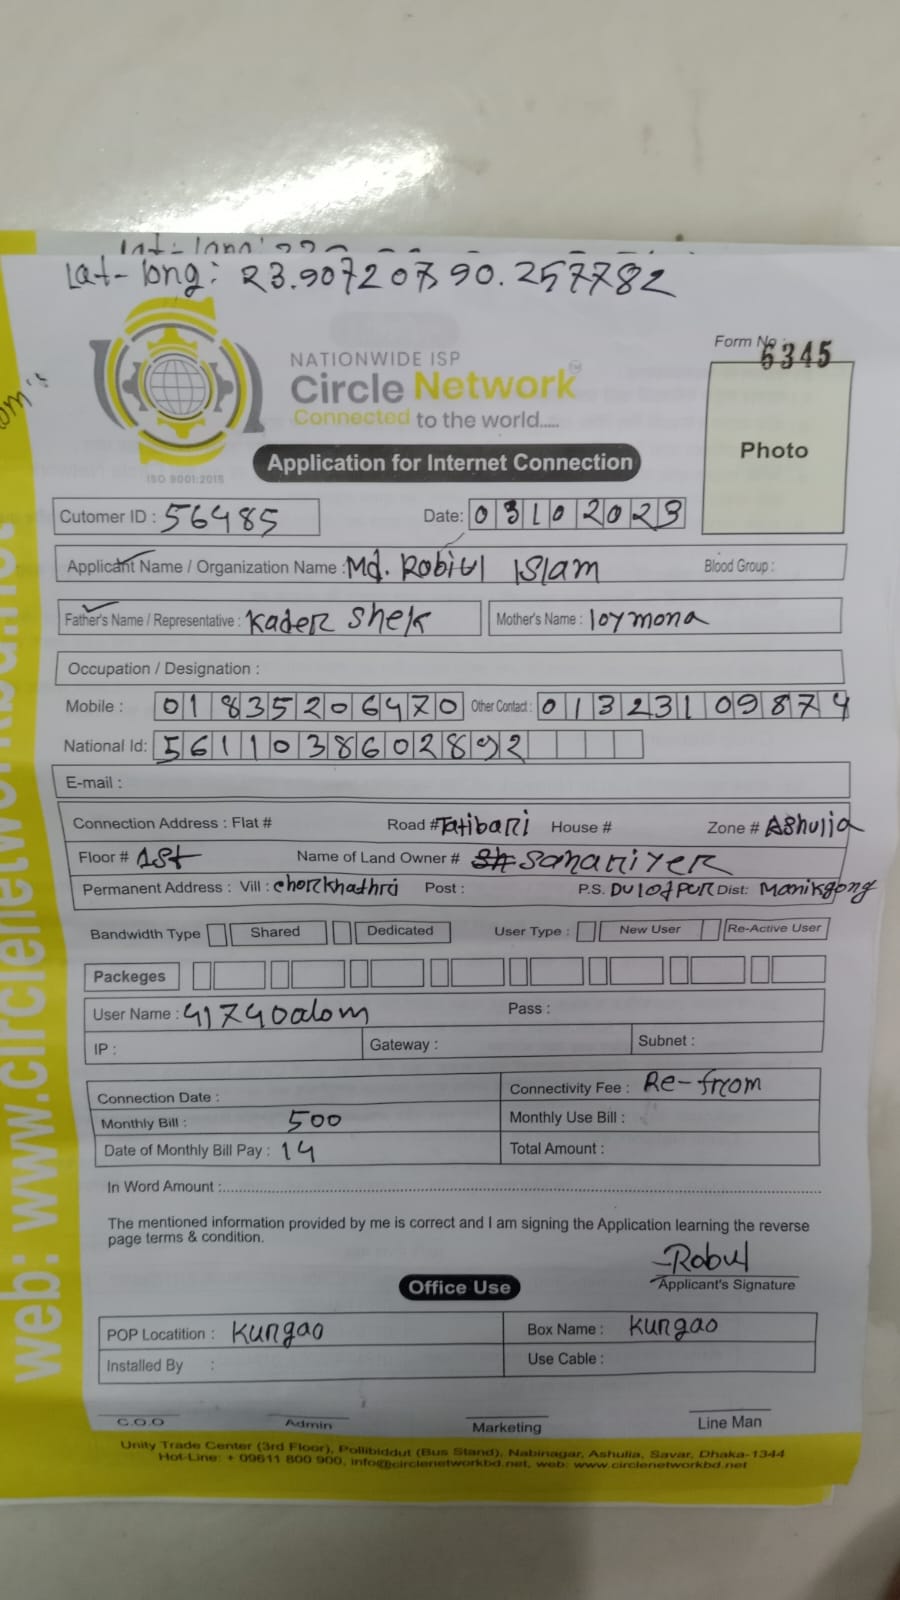 Lat-long: 23.907207,90.257782
NATIONWIDE ISP
Circle Network
Connected to the world.....
ISO 9001:2015
Form No : 6345
Photo
Application for Internet Connection
Cutomer ID : 56485
Date: 03102023
Applicant Name / Organization Name : Md. Robiul Islam Blood Group :
Father's Name / Representative : Kader Shek Mother's Name : loymona
Occupation / Designation :
Mobile : 01835206470 Other Contact : 01323109874
National Id: 5611038602892
E-mail :
Connection Address : Flat # Road # Tatibari House # Zone # Ashulia
Floor # 1st Name of Land Owner # Sahariyer
Permanent Address : Vill : chorkhathri Post : P.S. Dulotpur Dist: Manikgong
Bandwidth Type Shared Dedicated User Type : New User Re-Active User
Packeges
User Name : 41740alom Pass :
IP : Gateway : Subnet :
Connection Date : Connectivity Fee : Re-from
Monthly Bill : 500 Monthly Use Bill :
Date of Monthly Bill Pay : 14 Total Amount :
In Word Amount :
The mentioned information provided by me is correct and I am signing the Application learning the reverse
page terms & condition.
Robul
Applicant's Signature
Office Use
POP Locatition : Kungao Box Name : Kungao
Installed By : Use Cable :
C.O.O Admin Marketing Line Man
Unity Trade Center (3rd Floor), Pollibiddut (Bus Stand), Nabinagar, Ashulia, Savar, Dhaka-1344
Hot-Line: + 09611 800 900, info@circlenetworkbd.net, web: www.circlenetworkbd.net
web: www.circlenetworkbd.net